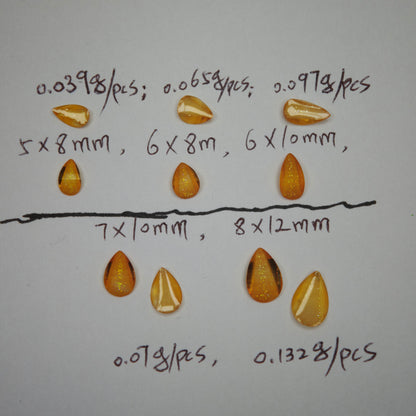 0.039g/pcs; 0.065g/pcs; 0.097g/pcs
5×8mm, 6×8m, 6×10mm,
7×10mm, 8×12mm
0.07g/pcs, 0.132g/pcs